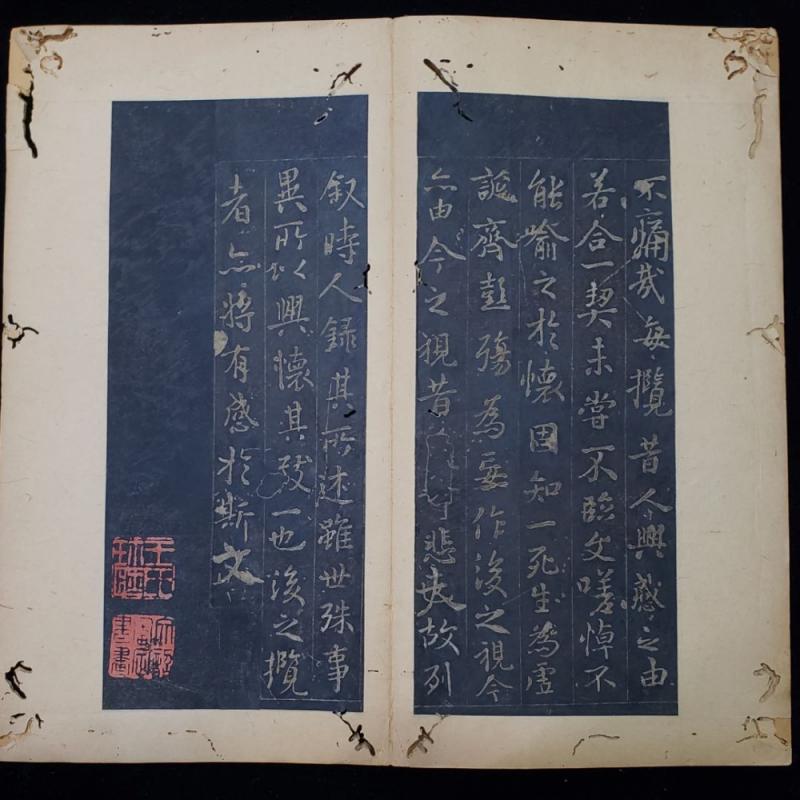 不痛哉每攬昔人興感之由
若合一契未嘗不臨文嗟悼不
能喻之於懷固知一死生為虛
誕齊彭殤為妄作後之視今
亦由今之視昔悲夫故列
叙時人録其所述雖世殊事
異所以興懷其致一也後之攬
者亦將有感於斯文